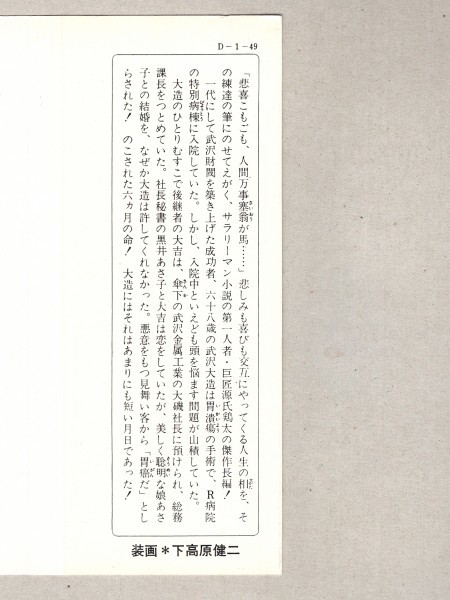 D－1－49
「悲喜こもごも、人間万事塞翁が馬……」悲しみも喜びも交互にやってくる人生の相を、そ
の練達の筆にのせてえがく、サラリーマン小説の第一人者・巨匠源氏鶏太の傑作長編！
一代にして武沢財閥を築き上げた成功者、六十八歳の武沢大造は胃潰瘍の手術で、R病院
の特別病棟に入院していた。しかし、入院中といえども頭を悩ます問題が山積していた。
大造のひとりむすこで後継者の大吉は、傘下の武沢金属工業の大磯社長に預けられ、総務
課長をつとめていた。社長秘書の黒井あさ子と大吉は恋をしていたが、美しく聡明な娘あさ
子との結婚を、なぜか大造は許してくれなかった。悪意をもつ見舞い客から「胃癌だ」とし
らされた！　のこされた六ヵ月の命！　大造にはそれはあまりにも短い月日であった！
装画＊下高原健二